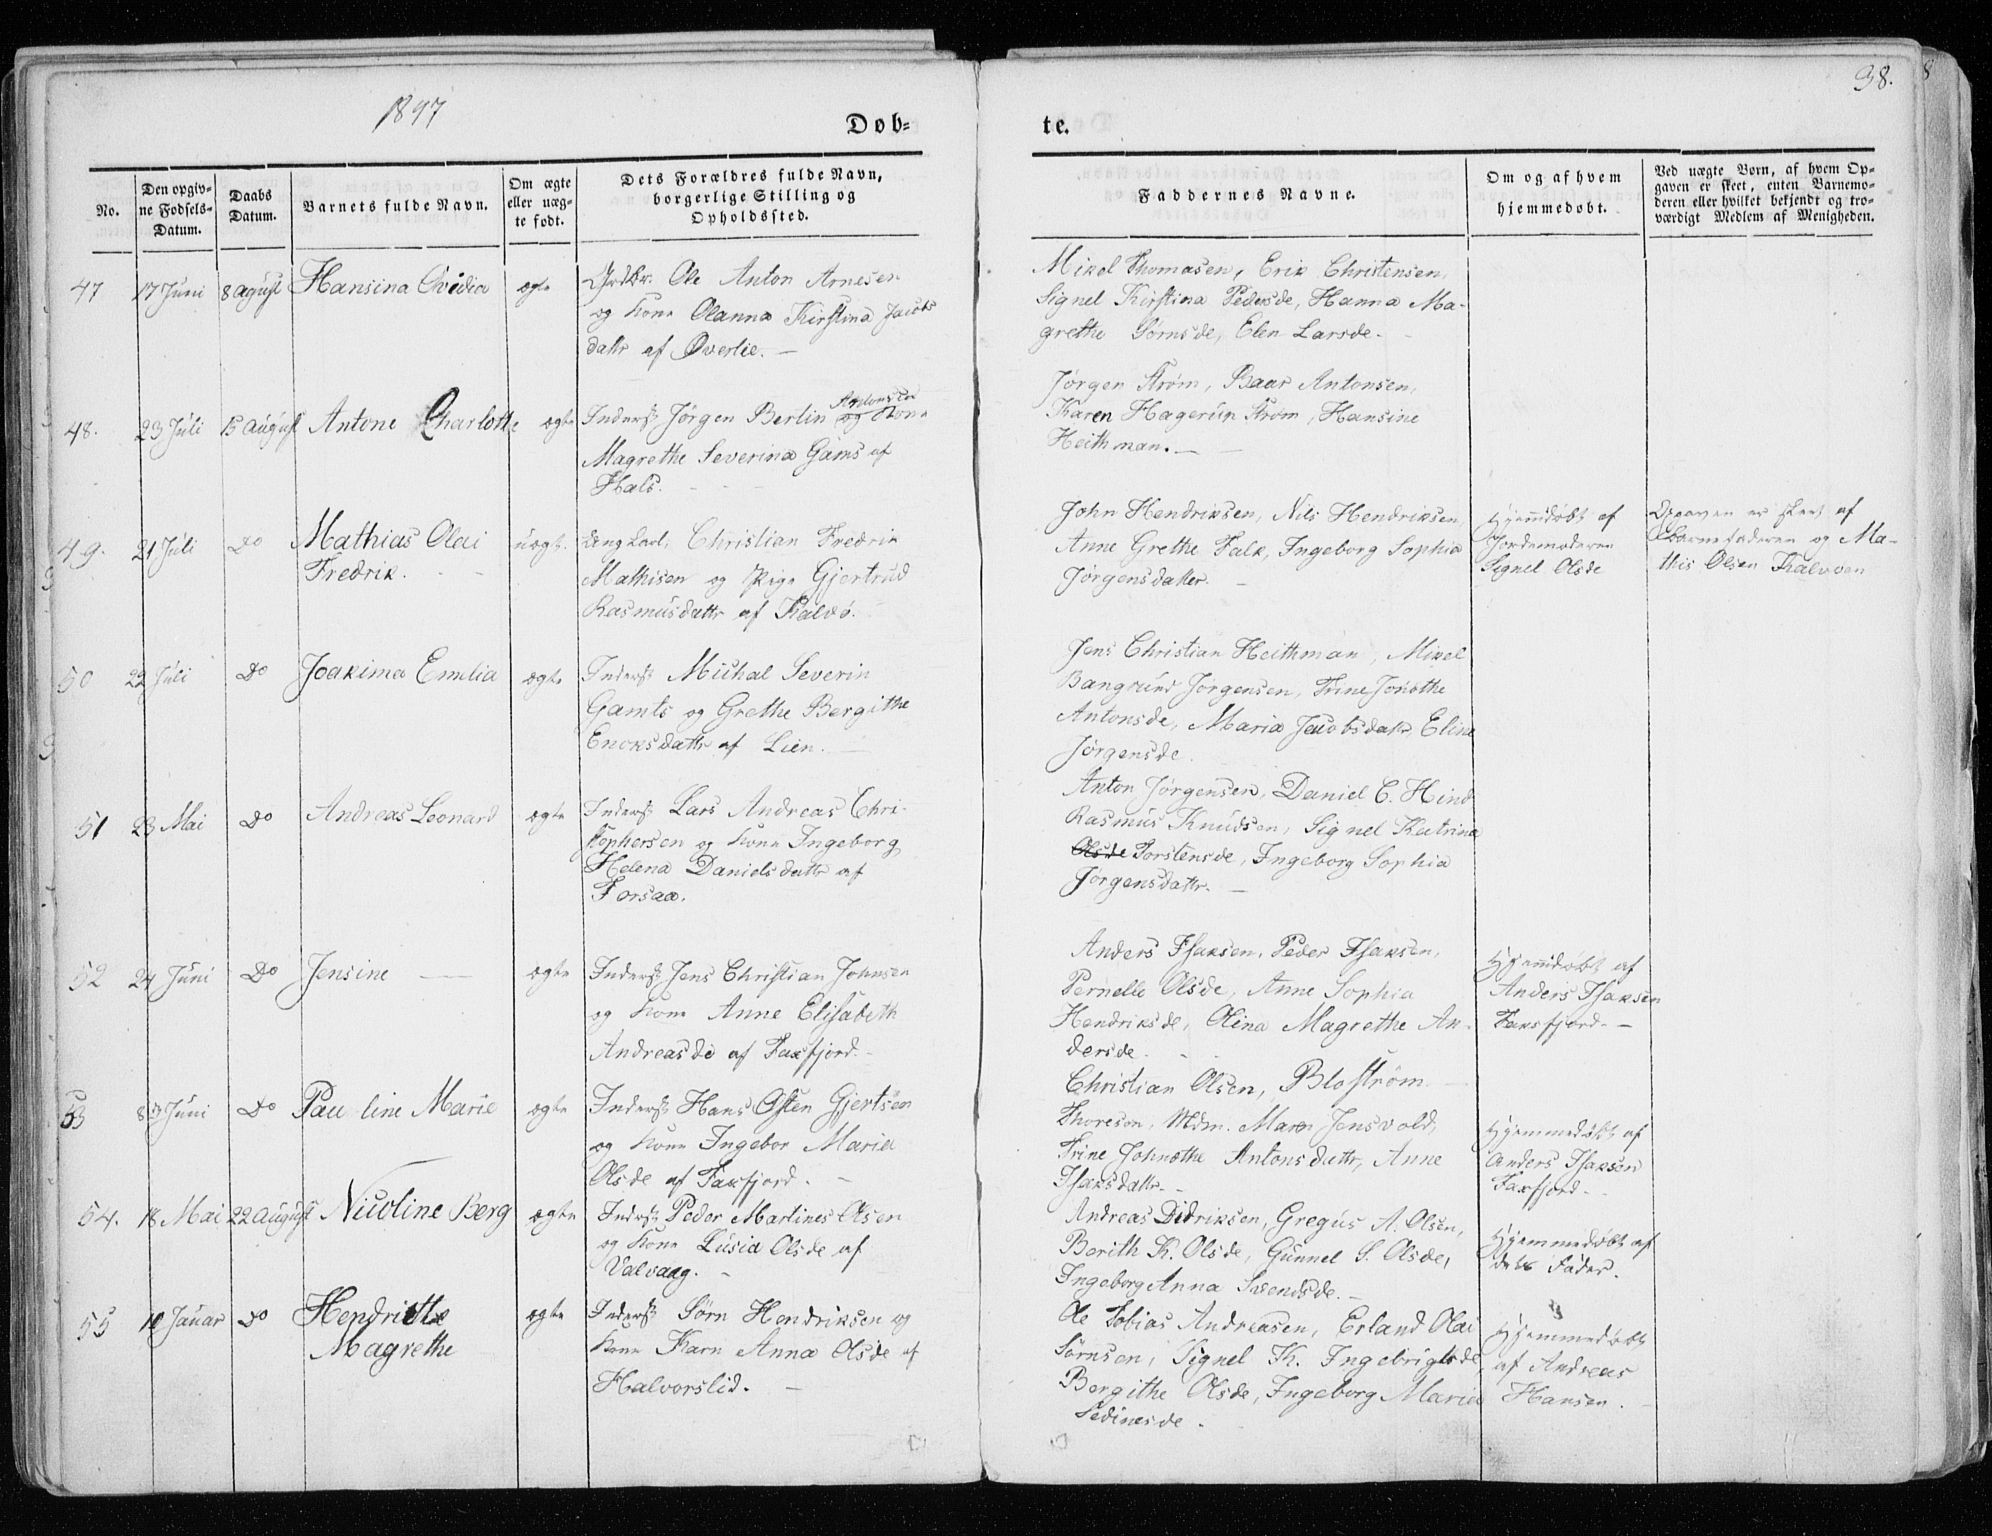 1847
38.
Døb-
te.
No.
Den opgiv-
ne Fødsels-
Datum.
Daabs
Datum.
Barnets fulde Navn.
Om ægte
eller uæg-
te født.
Dets Forældres fulde Navn,
borgerlige Stilling og
Opholdssted.
Faddernes Navne.
Om og af hvem
hjemmedøbt.
Ved uægte Børn, af hvem Op-
gaven er skeet, enten Barnemo-
deren eller hvilket bekjendt og tro-
værdigt Medlem af Menigheden.
47 17 Juni 8 august Hansina Ovidia ægte
Ole Anton Arnesen
og Kone Olanna Kirstina Jacobs
dattr af Øverlie. —
Mikel Thomasen, Erik Christensen,
Signel Kirstina Pedersde, Hanna Ma-
grethe Sørnsde, Elen Larsde. -
48. 23 Juli 15 august Antone Charlotte ægte
Inderst Jørgen Berlin Antonsen og Kone
Magrethe Severina Gams af
Hals.
Jørgen Strøm, Baar Antonsen,
Karen Hagerup Strøm, Hansine
Heithman. —
49. 21 Juli Do Mathias Olai
Fredrik.
uægt.
Ung Karl, Christian Fredrik
Mathisen og Pige Gjertrud
Rasmusdattr af Kalvø.
John Hendriksen, Nils Hendriksen,
Anne Grethe Falk, Ingeborg Sophia
Jørgensdatter. —
Hjemdøbt af
Jordemoderen
Signel Olsde
Opgaven er skeet af
Barnefaderen og Ma-
this Olsen Kalvøen
50 22 Juli Do Joakima Emelia ægte
Inderst Michal Severin
Gamts og Grethe Bergithe
Enoksdattr af Lien. —
Jens Christian Heithman, Mikel
Bangsund Jørgensen, Trine Jonethe
Antonsde, Maria Jacobsdatr Eline
Jørgensde.
51 23 Mai Do Andreas Leonard ægte
Inderst Lars Andreas Chri-
stophersen og Kone Ingeborg
Helena Danielsdattr af
Forsaa.
Anton Jørgensen, Daniel C. Hind
Rasmus Knudsen, Signel Katrina
Olsde Torstensde, Ingeborg Sophia
Jørgensdattr. —
52 24 Juni Do Jensine — ægte
Inderst Jens Christian Johnsen
og Kone Anne Elisabeth
Andreasde af Faxfjord. -
Anders Isaksen, Peder Isaksen,
Pernelle Olsde, Anne Sophia
Hendriksde, Olina Magrethe An-
dersde.
Hjemmdøbt af
Anders Isaksen
Faxfjord. —
53 8de Juni Do Pauline Marie ægte
Inderst Hans Østen Gjertsen
og Kone Ingebor Maria
Olsde af Faxfjord. -
Christian Olsen, Blostrøm
Thoreson, Mdm. Maren Jensvold,
Trine Johnethe Antonsdattr, Anne
Isaksdattr. -
Hjemmedøbt af
Anders Isaksen
Faxfjord. -
54. 18 Mai 22 august Nicoline Berg ægte
Inderst Peder Martines Olsen
og Kone Lusia Olsde af
Valvaag. -
Andreas Didriksen, Gregus A. Olsen,
Berith K. Olsde, Gunnel S. Olsde,
Ingeborg Anna Svendsde. -
Hjemmedøbt af
dets Fader.
55 10 Januar Do Hendriethe
Magrethe
ægte
Inderst Sørn Hendriksen og
Kone Karn Anna Olsde af
Halvorslid. —
Ole Tobias Andreasen, Erland Olai
Sørnsen, Signel K. Ingebrigtsde,
Bergithe Olsde, Ingeborg Maria
Sedinesde.
Hjemmedøbt
af Andreas
Hansen.